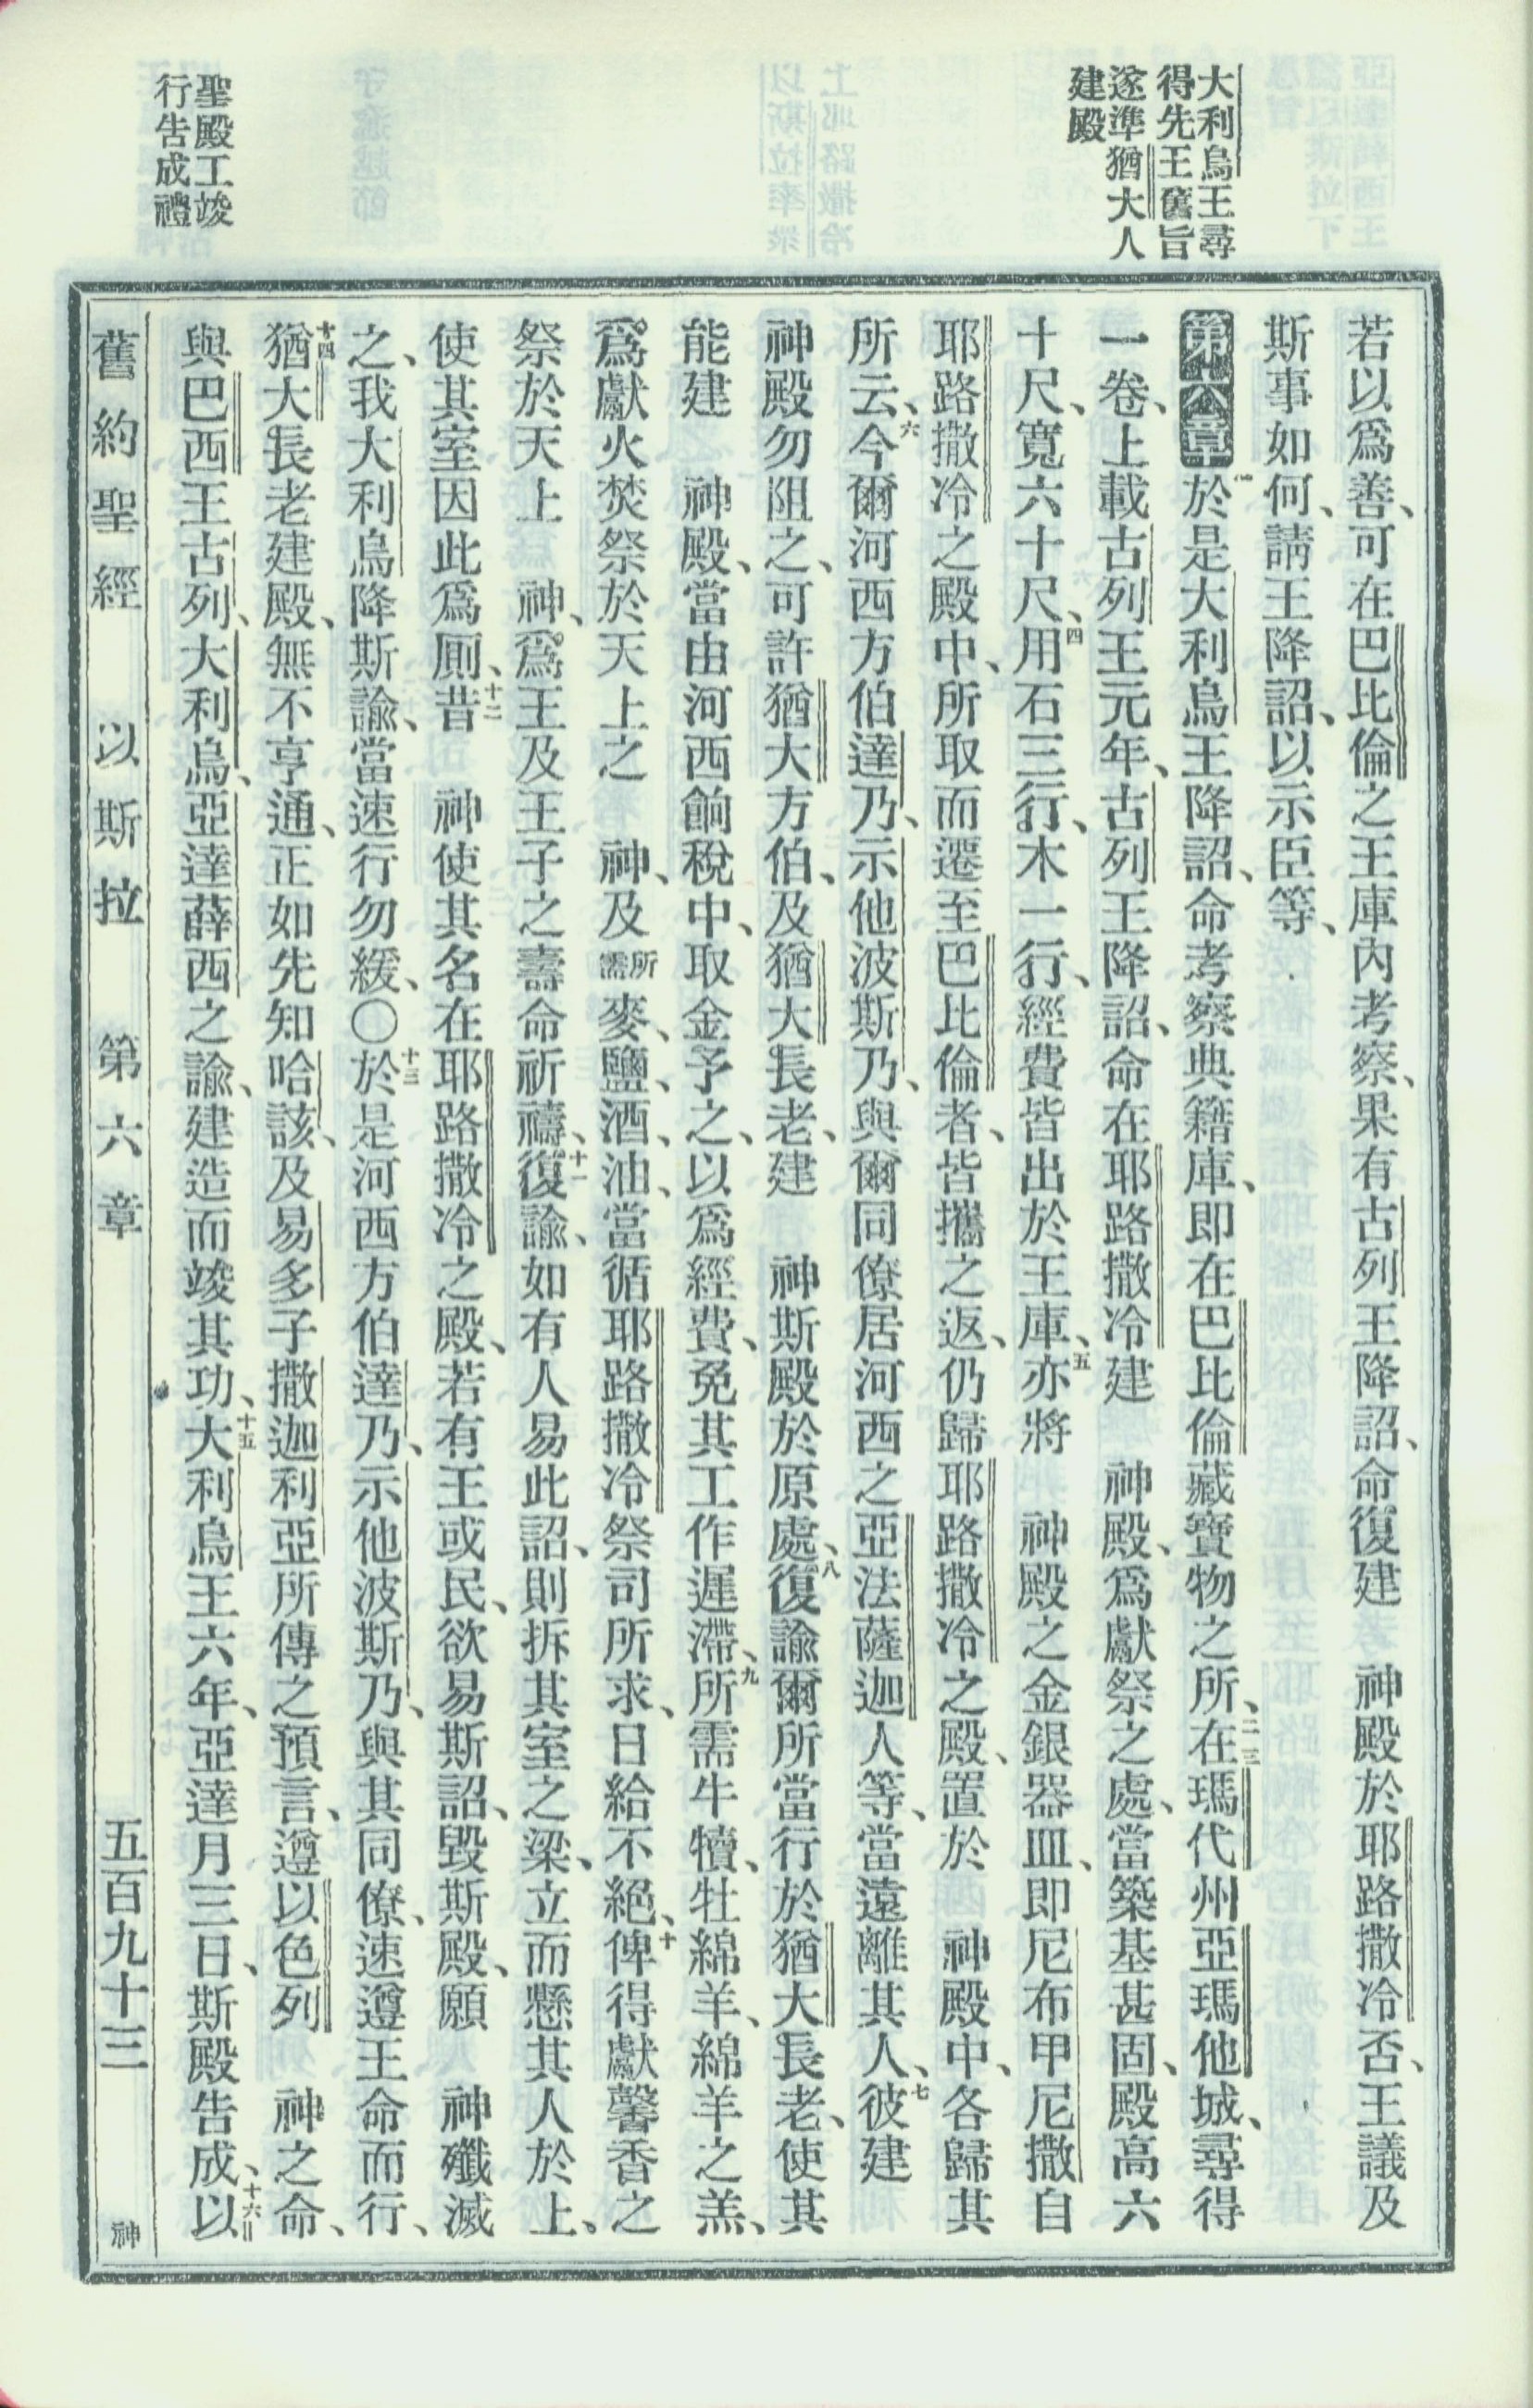 大利烏王尋
得先王舊旨
遂準猶大人
建殿
聖殿工竣
行告成禮
若以爲善、可在巴比倫之王庫內考察、果有古列王降詔、命復建　神殿於耶路撒冷否、王議及
斯事如何、請王降詔、以示臣等、
第六章 一於是大利烏王降詔、命考察典籍庫、即在巴比倫藏寶物之所、二三在瑪代州亞瑪他城、尋得
一卷、上載古列王元年、古列王降詔、命在耶路撒冷建　神殿、爲獻祭之處、當築基甚固、殿高六
十尺、寬六十尺、四用石三行、木一行、經費皆出於王庫、五亦將　神殿之金銀器皿、即尼布甲尼撒自
耶路撒冷之殿中、所取而遷至巴比倫者、皆攜之返、仍歸耶路撒冷之殿、置於　神殿中、各歸其
所云、六今爾河西方伯達乃、示他波斯乃、與爾同僚居河西之亞法薩迦人等、當遠離其人、七彼建
神殿勿阻之、可許猶大方伯、及猶大長老、建　神斯殿於原處、八復諭爾所當行於猶大長老、使其
能建　神殿、當由河西餉稅中、取金予之、以爲經費、免其工作遲滯、九所需牛犢、牡綿羊、綿羊之羔、
爲獻火焚祭於天上之　神、及所需麥、鹽、酒、油、當循耶路撒冷祭司所求、日給不絕、十俾得獻馨香之
祭於天上　神、爲王及王子之壽命祈禱、十一復諭、如有人易此詔、則拆其室之梁、立而懸其人於上、
使其室因此爲厠、十二昔　神使其名在耶路撒冷之殿、若有王或民、欲易斯詔、毀斯殿、願　神殲滅
之、我大利烏降斯諭、當速行勿緩、〇十三於是河西方伯達乃、示他波斯乃、與其同僚、速遵王命而行、
十四猶大長老建殿、無不亨通、正如先知哈該、及易多子撒迦利亞所傳之預言、遵以色列　神之命、
與巴西王古列、大利烏、亞達薛西之諭、建造而竣其功、十五大利烏王六年、亞達月三日、斯殿告成、十六以
舊約聖經　以斯拉　第六章　五百九十三　神